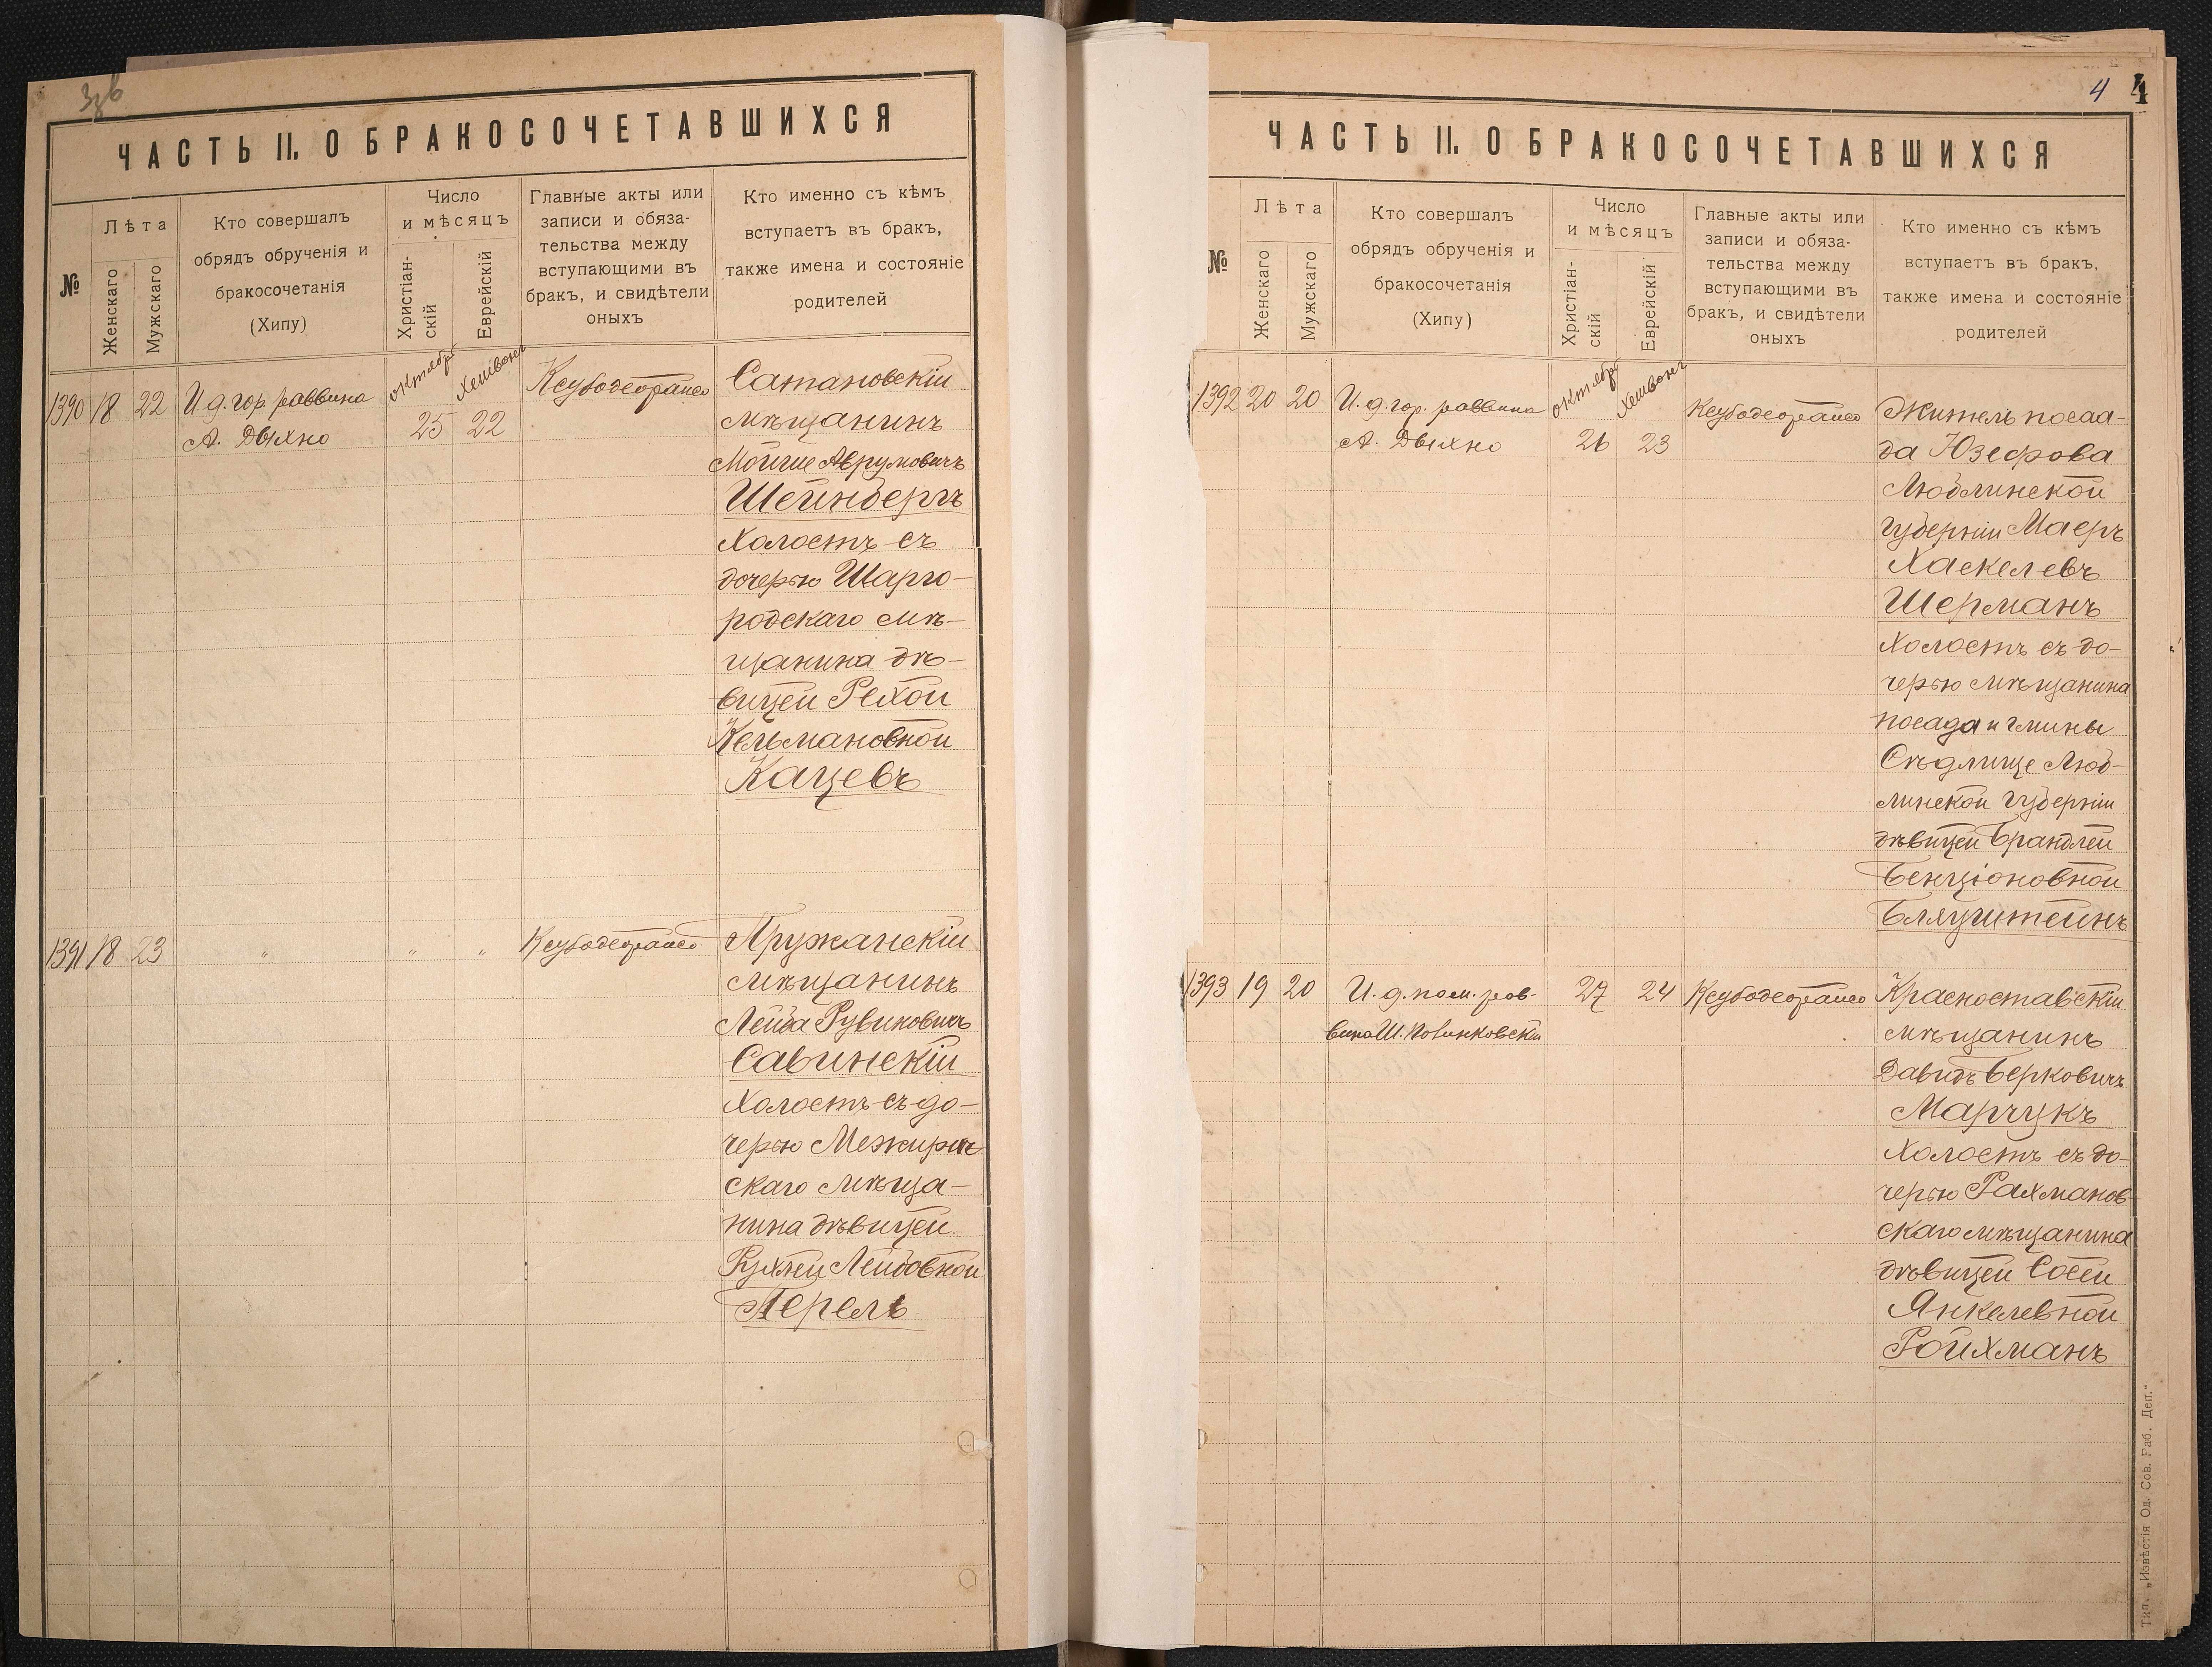 3об
ЧАСТЬ II. О БРАКОСОЧЕТАВШИХСЯ
№
Лѣта
Женскаго
Мужскаго
Кто совершалъ
обрядъ обрученія и
бракосочетанія
(Хипу)
Число
и мѣсяцъ
Христіан-
скій
Еврейскій
Главные акты или
записи и обяза-
тельства между
вступающими въ
бракъ, и свидѣтели
оныхъ
Кто именно съ кѣмъ
вступаетъ въ бракъ,
также имена и состояніе
родителей
1390 18 22
И.д. гор. раввина
А. Дыхно
октябрь
25
Хешвонъ
22
Сатановскій
мѣщанинъ
Мойше Аврумовичъ
Шейнбергъ
холостъ съ
дочерью Шарго-
родскаго мѣ-
щанина дѣ-
вицей Рейхой
Кельмановной
Кацевъ
1391 18 23
" " "
Пружанскій
мѣщанинъ
Лейба Рувиновичъ
Савинскій
холостъ съ до-
черью Межирич
скаго мѣща-
нина дѣвицей
Рухлей Лейбовной
Перель
4 4
ЧАСТЬ II. О БРАКОСОЧЕТАВШИХСЯ
№
Лѣта
Женскаго
Мужскаго
Кто совершалъ
обрядъ обрученія и
бракосочетанія
(Хипу)
Число
и мѣсяцъ
Христіан-
скій
Еврейскій
Главные акты или
записи и обяза-
тельства между
вступающими въ
бракъ, и свидѣтели
оныхъ
Кто именно съ кѣмъ
вступаетъ въ бракъ,
также имена и состояніе
родителей
1392 20 20
И.д. гор. раввина
А. Дыхно
октябрь
26
Хешвонъ
23
Житель посаа-
да Юзефова
Люблинской
губерніи Маеръ
Хаскелевъ
Шерманъ
холостъ съ до-
черью мѣщанина
посада и гмины
Сѣдлище Люб-
линской губерніи
дѣвицей Брандлей
Бенціоновной
Бляуштейнъ
1393 19 20
И.д. пом. рав-
вина Ш.
27 24
Красноставскій
мѣщанинъ
Давидъ Берковичъ
Марчукъ
холостъ съ до-
черью Рахманов-
скаго мѣщанина
дѣвицей Сосей
Янкелевной
Ройхманъ
Тип. „Извѣстія Од. Сов. Раб. Деп."